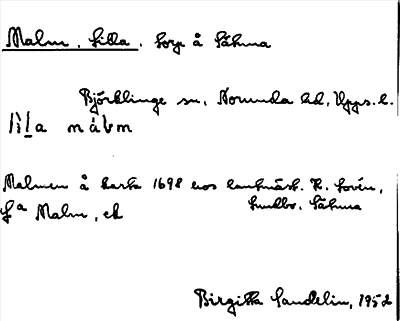 Malm, Lilla, torp å Sätuna
Björklinge sn, Norunda hd, Upps. l.
lìl̲a màlvm
Malmen å karta 1698 hos lantmät. K. Lovén,
La Malm, ek
Lundbo, Sätuna
Birgitta Sandelin, 1952